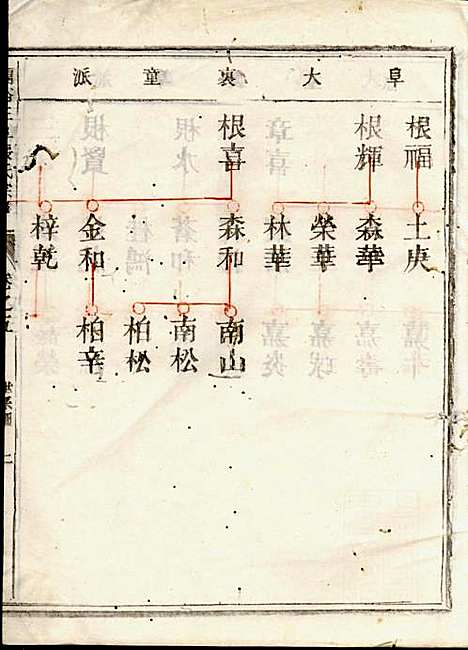 阜大裏童派
根福
根輝
根喜
土庚
森華
榮華
林華
森和
金和
梓乾
南山
南松
柏松
柏辛
卷之五